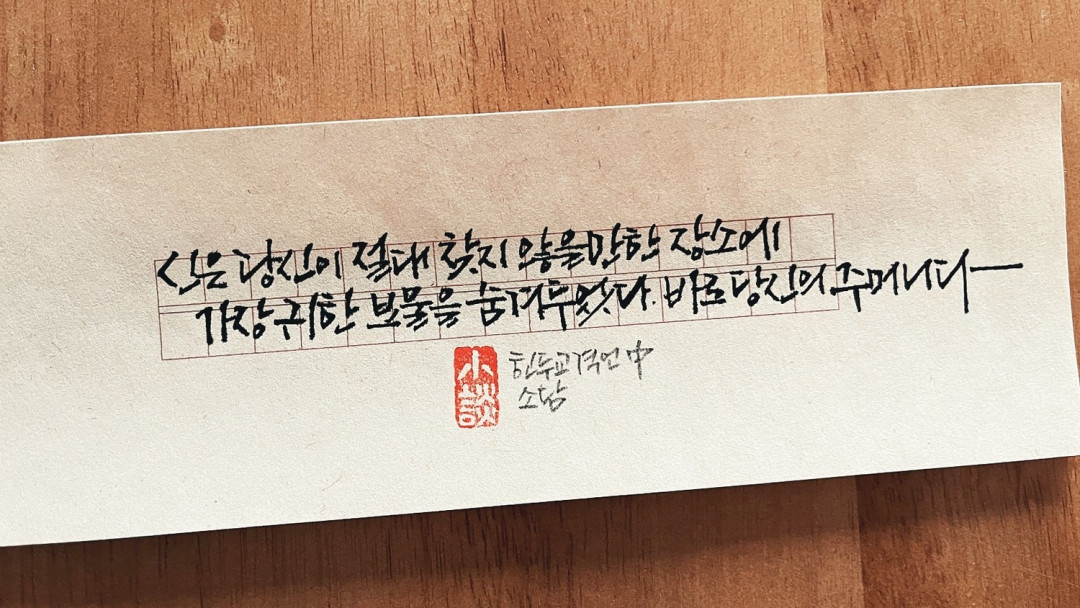 신은 당신이 절대 찾지 않을만한 장소에
가장 귀한 보물을 숨겨두었다. 바로 당신의 주머니다
小談
힌두교격언 中
소담